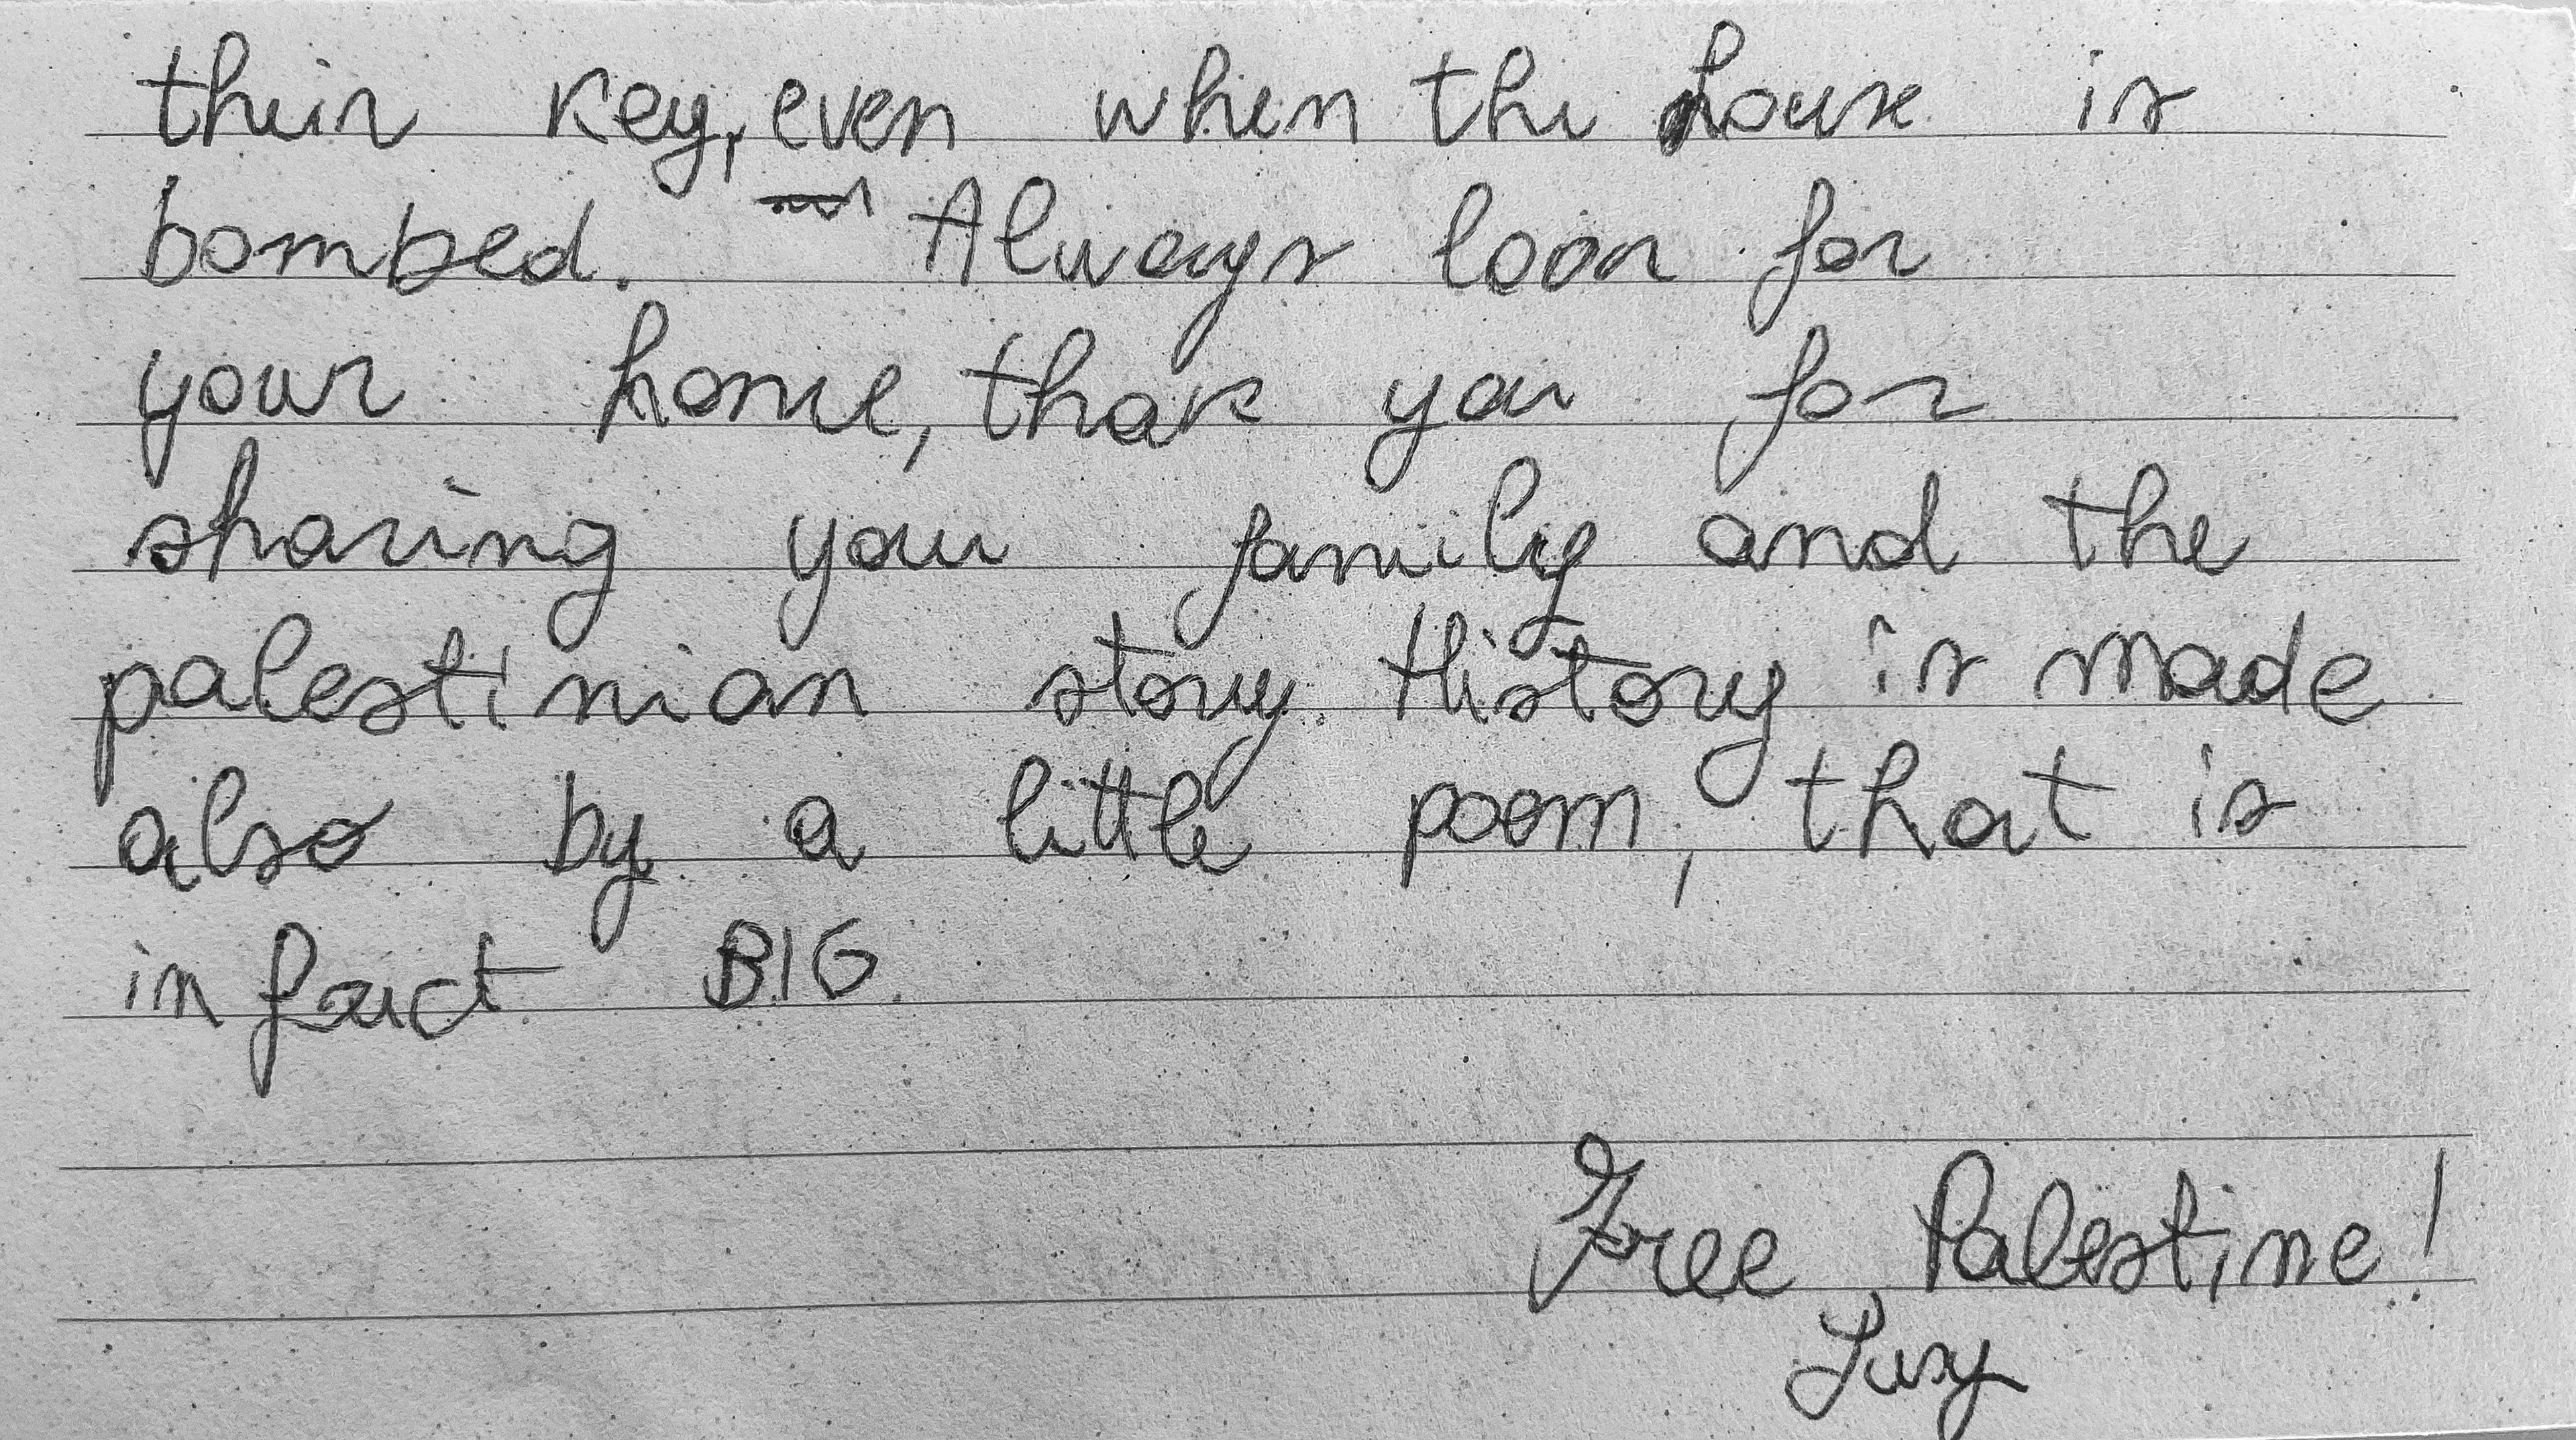 their key, even when the house is
bombed. Always look for
your home, thak you for
sharing your family and the
palestinian story. History is made
also by a little poem, that is
in fact BIG.
Free Palestine!